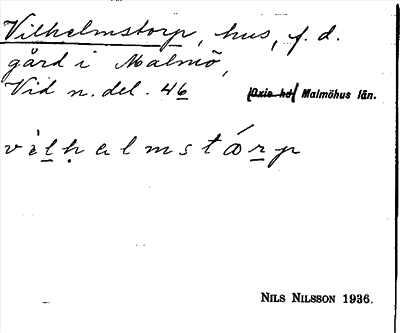 Vilhelmstorp, hus, f. d.
gård i Malmö,
Vid n. del. 46 [Oxie hd] Malmöhus län.
vìlḥelmstórp
NILS NILSSON 1936.